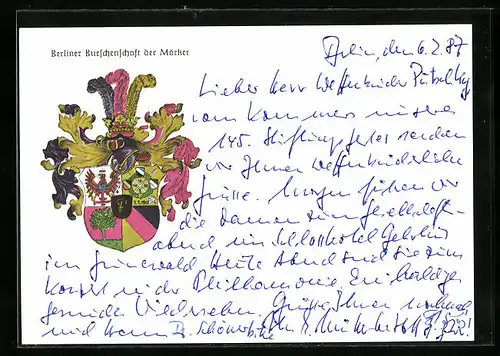 Berliner Burschenschaft der Märker
Berlin, den 6.2.87
Lieber Herr Waffenbruder
vom Kommers unseres
145. Stiftungsfestes senden
wir Ihnen waffenbrüderliche
Grüsse. Morgen führen wir
die Damen zum Gesellschafts-
abend im Schlosshotel Gehrhus
im Grunewald. Heute Abend sind sie zum
Konzert in der Philharmonie. Ein baldiges
gesundes Wiedersehen. Grüsse Ihnen
und